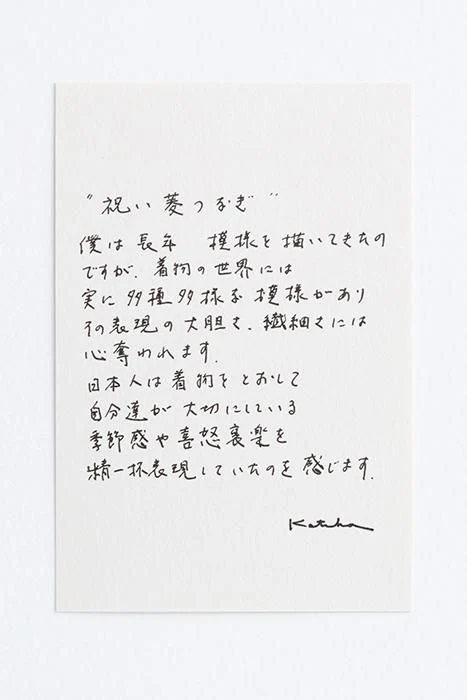 "祝い菱つなぎ"
僕は長年 模様を描いてきたの
ですが、着物の世界には
実に多種多様な模様があり
その表現の大胆さ、繊細さには
心奪われます。
日本人は着物をとおして
自分達が大切にしている
季節感や喜怒哀楽を
精一杯表現していたのを感じます。